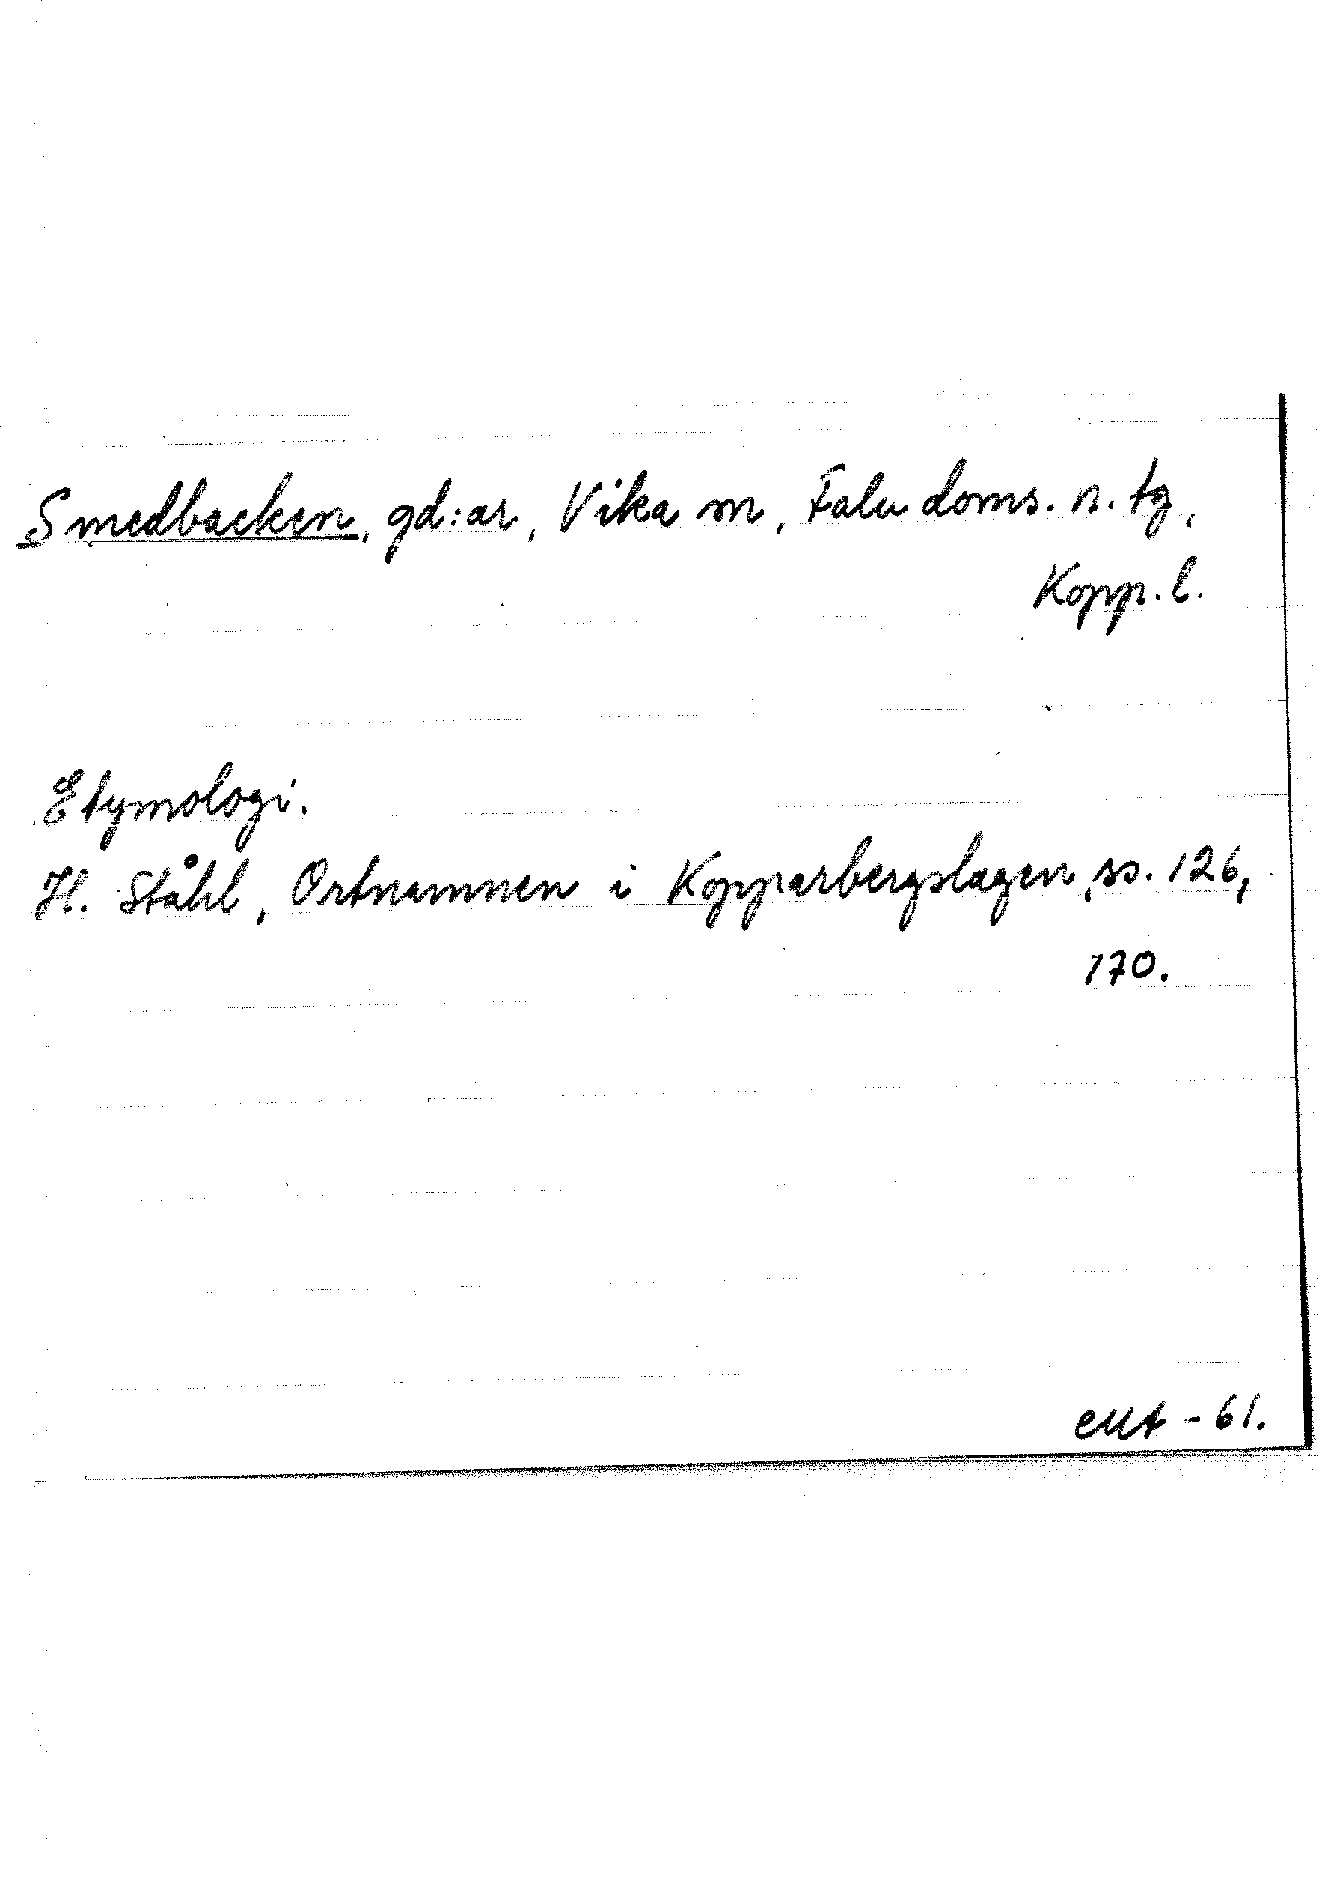 Smedbacken, gd:ar, Vika sn, Falu doms. n. tg,
Kopp. l.
Etymologi.
H. Ståhl, Ortnamnen i Kopparbergslagen, ss. 126,
170.
-61.